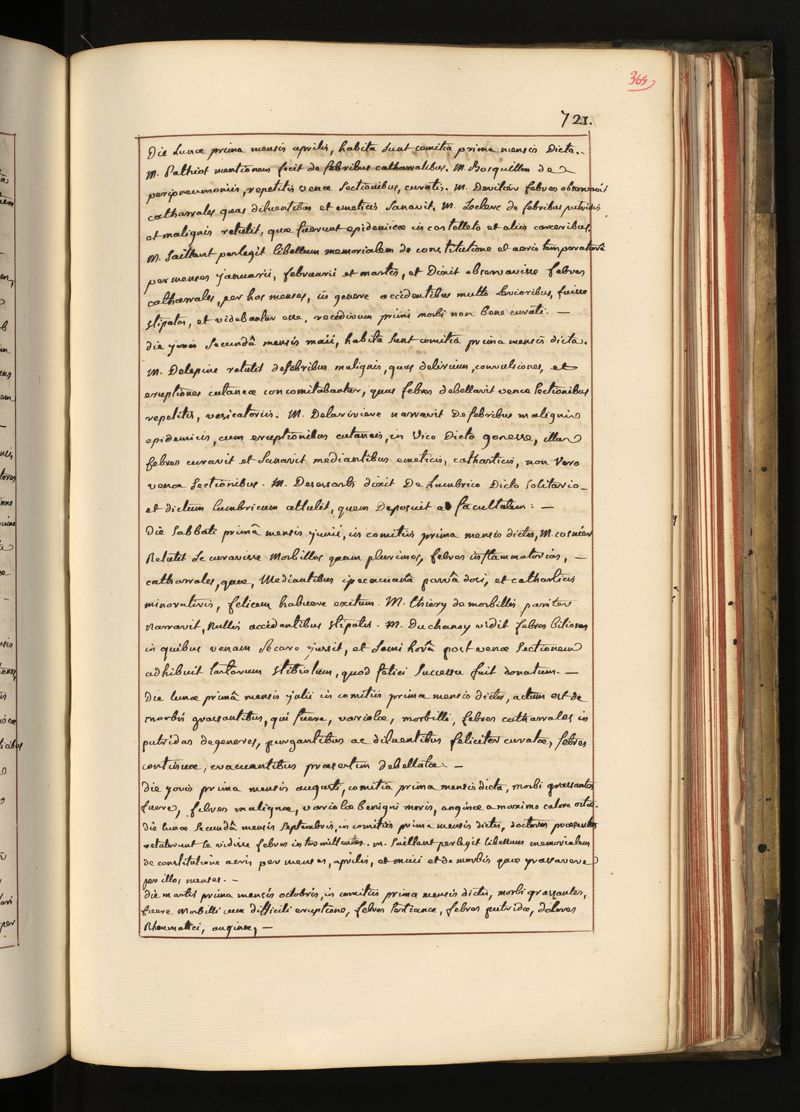 365
721.
Die Lunæ prima mensis aprilis, habita sunt comitia prima mensis Dicta.
M. Pathiot mentionem fecit de febribus catharralibus. M. Bosquillon de
peripneumoniis, repetitis venæ Sectionibus, curatis. M. febres observavit
catharrales quas diluentibus et emeticis Sanavit. M. Leclerc de febribus putridis
et malignis retulit, quæ fuerunt epidemicæ in castelleto et aliis carceribus.
M. Saillant perlegit libellum memorialem de constitutione et aeris temperatura
per menses januarii, februarii et martis, et Dixit observavisse febres
catharrales, per hos menses, in genere accidentibus multo levioribus, fuisse
stipatas, et videbantur esse, recedivam primi morbi non bene curati. —
die jovis Secundâ mensis maii, habita Sunt comitia prima mensis dicta.
M. Delepine retulit de febribus malignis, quas delirium, convulsiones, et
eruptiones cutaneæ concomitabantur, quas febres debellavit venæ Sectionibus
repetitis, vesicatoriis. M. Delariviere narravit De febribus malignis
epidemicis, cum eruptionibus cutaneis, in Vico Dicto gonesse, illas
febres curavit et Sanavit mediantibus emeticis, catharticis, non Vero
venæ Sectionibus. M. Desessartz dixit De Lumbrico Dicto Solitario
et dictum lumbricum attulit, quem Deposuit a facultatem: —
Die Sabbati primâ mensis junii, in comitiis prima mensis dictis, M. cosnier
Retulit Se curavisse Morbillos quam plurimos, febres inflammatorias, —
catharrales, quæ, Mediantibus ipecacuana parvâ dosi, et catharticis
minorativis, felicem habuere exitum. M. Thiery de morbillis pariter
Narravit, Nullis accidentibus stipatis. M. Duchanoy vidit febres biliosas
in quibus venam Secare jussit, et Semi horâ post venæ Sectionem
adhibuit tartarum stibiatum, quod felici Successu fuit donatum. —
Die lunæ primâ mensis julii in comitiis prima mensis dictis, actum est de
morbis grassantibus, qui fuere, variolæ, morbilli, febres catharrales in
putridas degeneres, purgantibus ac diluentibus feliciter curatæ, febres
continuæ, evacuantibus præsertim debellatæ. —
die jovis prima mensis augusti, comitia prima mensis dicta, morbi grassantes
fuere, febres malignæ, variolæ benigni moris, anginæ a maximo calore ortæ.
die lunæ Secundâ mensis Septembris, in comitiis prima mensis dictis, doctores præsentes
retulerunt Se vidisse febres intermittentes. M. Saillant perlegit libellum memorialem
de constitutione aeris per menses, aprilis, et maii et de morbis quæ grassavere
per illos menses. —
die martis prima mensis octobris, in comitiis prima mensis dictis, morbi grassantes,
fuere Morbilli cum difficili eruptione, febres tertianæ, febres putridæ, dolores
Rheumatici, anginæ, —